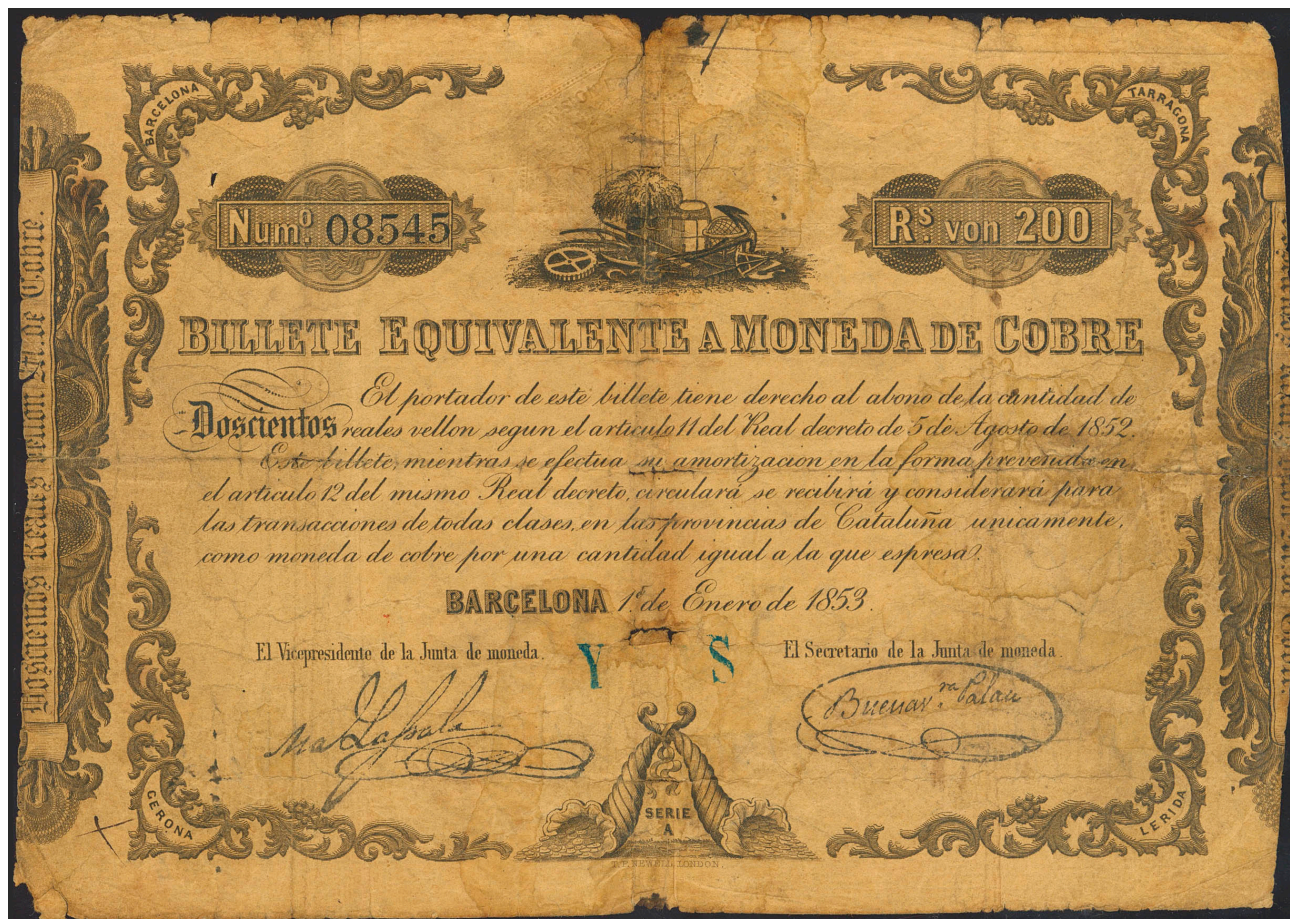 BARCELONA
TARRAGONA
Num.º 08545
R.S von 200
BILLETE EQUIVALENTE A MONEDA DE COBRE
El portador de este billete tiene derecho al abono de la cantidad de
Doscientos reales vellon segun el articulo 11 del Real decreto de 5 de Agosto de 1852.
Este billete, mientras se efectua su amortizacion en la forma prevenida en
el articulo 12 del mismo Real decreto, circulará se recibirá y considerará para
las transacciones de todas clases, en las provincias de Cataluña unicamente,
como moneda de cobre por una cantidad igual a la que espresa.
BARCELONA 1.º de Enero de 1853.
El Vicepresidente de la Junta de moneda.
Y S
El Secretario de la Junta de moneda.
Buenav.ra Palau
GERONA
SERIE
A
LERIDA
NEWELL LONDON
Doscientos Reales vellon M. de Cobre.